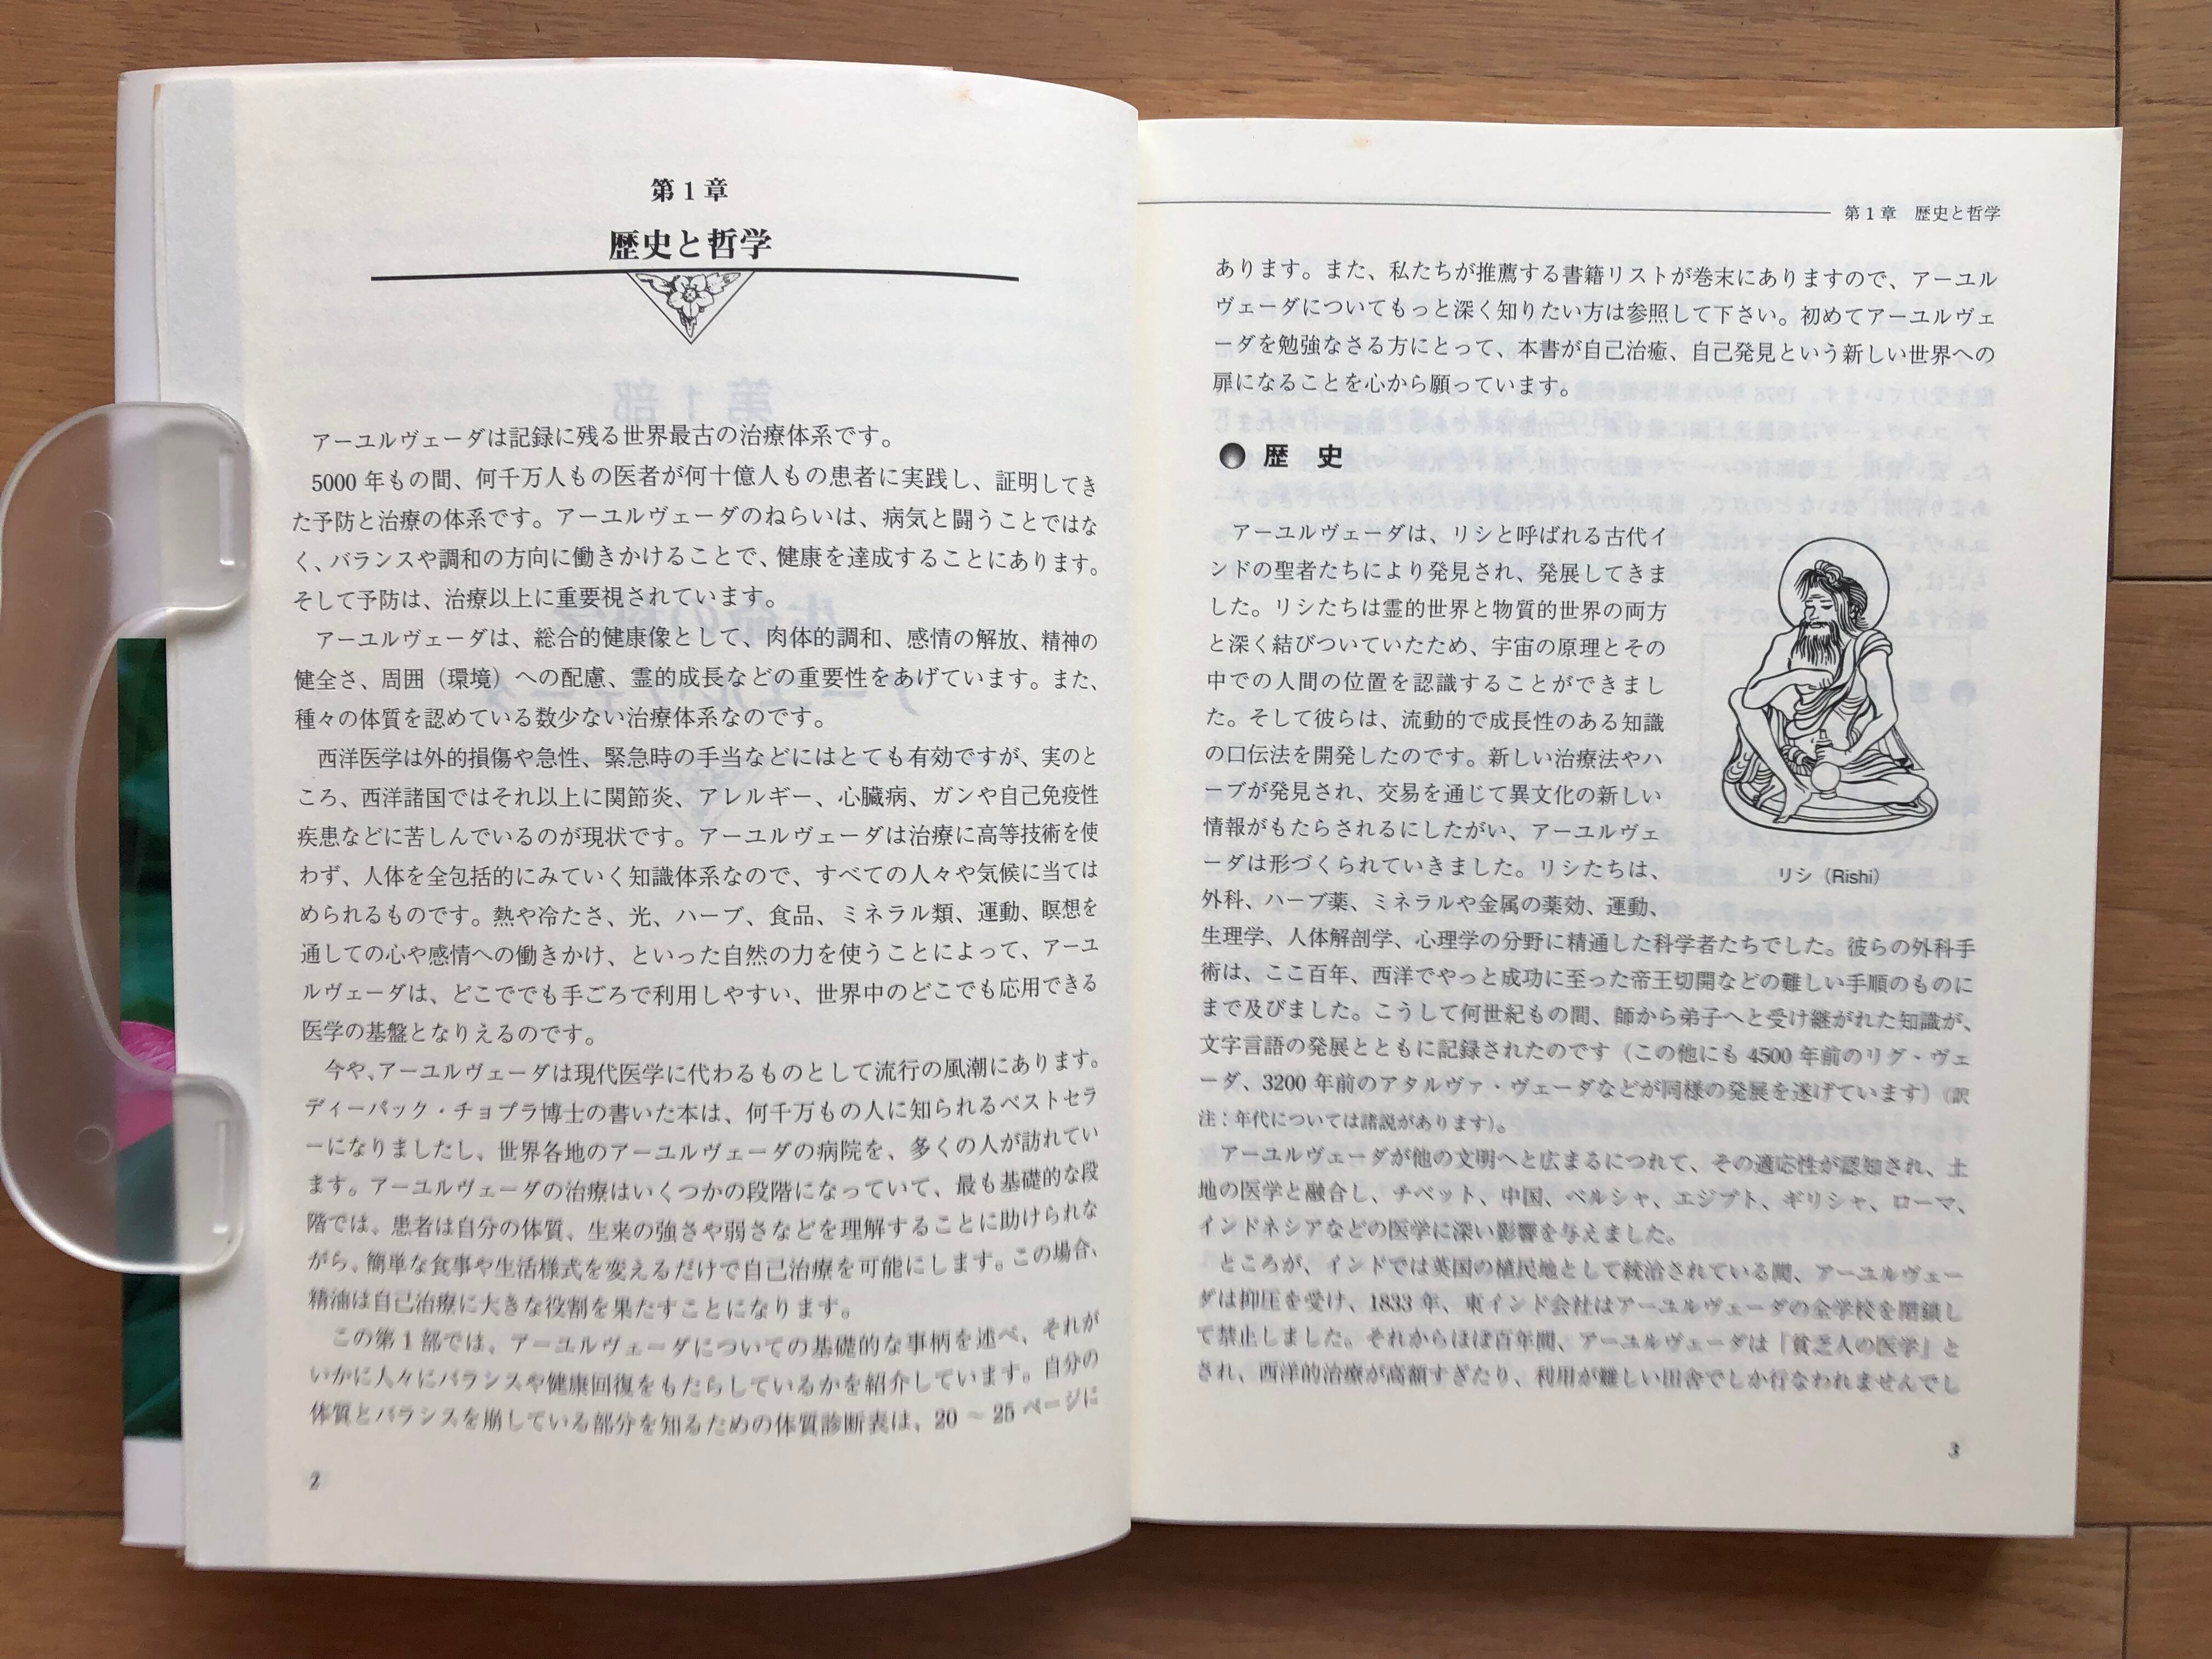 第1章
歴史と哲学
アーユルヴェーダは記録に残る世界最古の治療体系です。
5000年もの間、何千万人もの医者が何十億人もの患者に実践し、証明してき
た予防と治療の体系です。アーユルヴェーダのねらいは、病気と闘うことではな
く、バランスや調和の方向に働きかけることで、健康を達成することにあります。
そして予防は、治療以上に重要視されています。
アーユルヴェーダは、総合的健康像として、肉体的調和、感情の解放、精神の
健全さ、周囲（環境）への配慮、霊的成長などの重要性をあげています。また、
種々の体質を認めている数少ない治療体系なのです。
西洋医学は外的損傷や急性、緊急時の手当などにはとても有効ですが、実のと
ころ、西洋諸国ではそれ以上に関節炎、アレルギー、心臓病、ガンや自己免疫性
疾患などに苦しんでいるのが現状です。アーユルヴェーダは治療に高等技術を使
わず、人体を全包括的にみていく知識体系なので、すべての人々や気候に当ては
められるものです。熱や冷たさ、光、ハーブ、食品、ミネラル類、運動、瞑想を
通しての心や感情への働きかけ、といった自然の力を使うことによって、アーユ
ルヴェーダは、どこででも手ごろで利用しやすい、世界中のどこでも応用できる
医学の基盤となりえるのです。
今や、アーユルヴェーダは現代医学に代わるものとして流行の風潮にあります。
ディーパック・チョプラ博士の書いた本は、何千万もの人に知られるベストセラ
ーになりましたし、世界各地のアーユルヴェーダの病院を、多くの人が訪れてい
ます。アーユルヴェーダの治療はいくつかの段階になっていて、最も基礎的な段
階では、患者は自分の体質、生来の強さや弱さなどを理解することに助けられな
がら、簡単な食事や生活様式を変えるだけで自己治療を可能にします。この場合、
精油は自己治療に大きな役割を果たすことになります。
この第1部では、アーユルヴェーダについての基礎的な事柄を述べ、それが
いかに人々にバランスや健康回復をもたらしているかを紹介しています。自分の
体質とバランスを崩している部分を知るための体質診断表は、20～25ページに
2
第1章 歴史と哲学
あります。また、私たちが推薦する書籍リストが巻末にありますので、アーユル
ヴェーダについてもっと深く知りたい方は参照して下さい。初めてアーユルヴェ
ーダを勉強なさる方にとって、本書が自己治癒、自己発見という新しい世界への
扉になることを心から願っています。
●歴 史
アーユルヴェーダは、リシと呼ばれる古代イ
ンドの聖者たちにより発見され、発展してきま
した。リシたちは霊的世界と物質的世界の両方
と深く結びついていたため、宇宙の原理とその
中での人間の位置を認識することができまし
た。そして彼らは、流動的で成長性のある知識
の口伝法を開発したのです。新しい治療法やハ
ーブが発見され、交易を通じて異文化の新しい
情報がもたらされるにしたがい、アーユルヴェ
ーダは形づくられていきました。リシたちは、
外科、ハーブ薬、ミネラルや金属の薬効、運動、
生理学、人体解剖学、心理学の分野に精通した科学者たちでした。彼らの外科手
術は、ここ百年、西洋でやっと成功に至った帝王切開などの難しい手順のものに
まで及びました。こうして何世紀もの間、師から弟子へと受け継がれた知識が、
文字言語の発展とともに記録されたのです（この他にも4500年前のリグ・ヴェ
ーダ、3200年前のアタルヴァ・ヴェーダなどが同様の発展を遂げています）（訳
注：年代については諸説があります）。
アーユルヴェーダが他の文明へと広まるにつれて、その適応性が認知され、土
地の医学と融合し、チベット、中国、ペルシャ、エジプト、ギリシャ、ローマ、
インドネシアなどの医学に深い影響を与えました。
ところが、インドでは英国の植民地として統治されている間、アーユルヴェー
ダは抑圧を受け、1833年、東インド会社はアーユルヴェーダの全学校を閉鎖し
て禁止しました。それからほぼ百年間、アーユルヴェーダは「貧乏人の医学」と
され、西洋的治療が高額すぎたり、利用が難しい田舎でしか行なわれませんでし
リシ（Rishi）
3